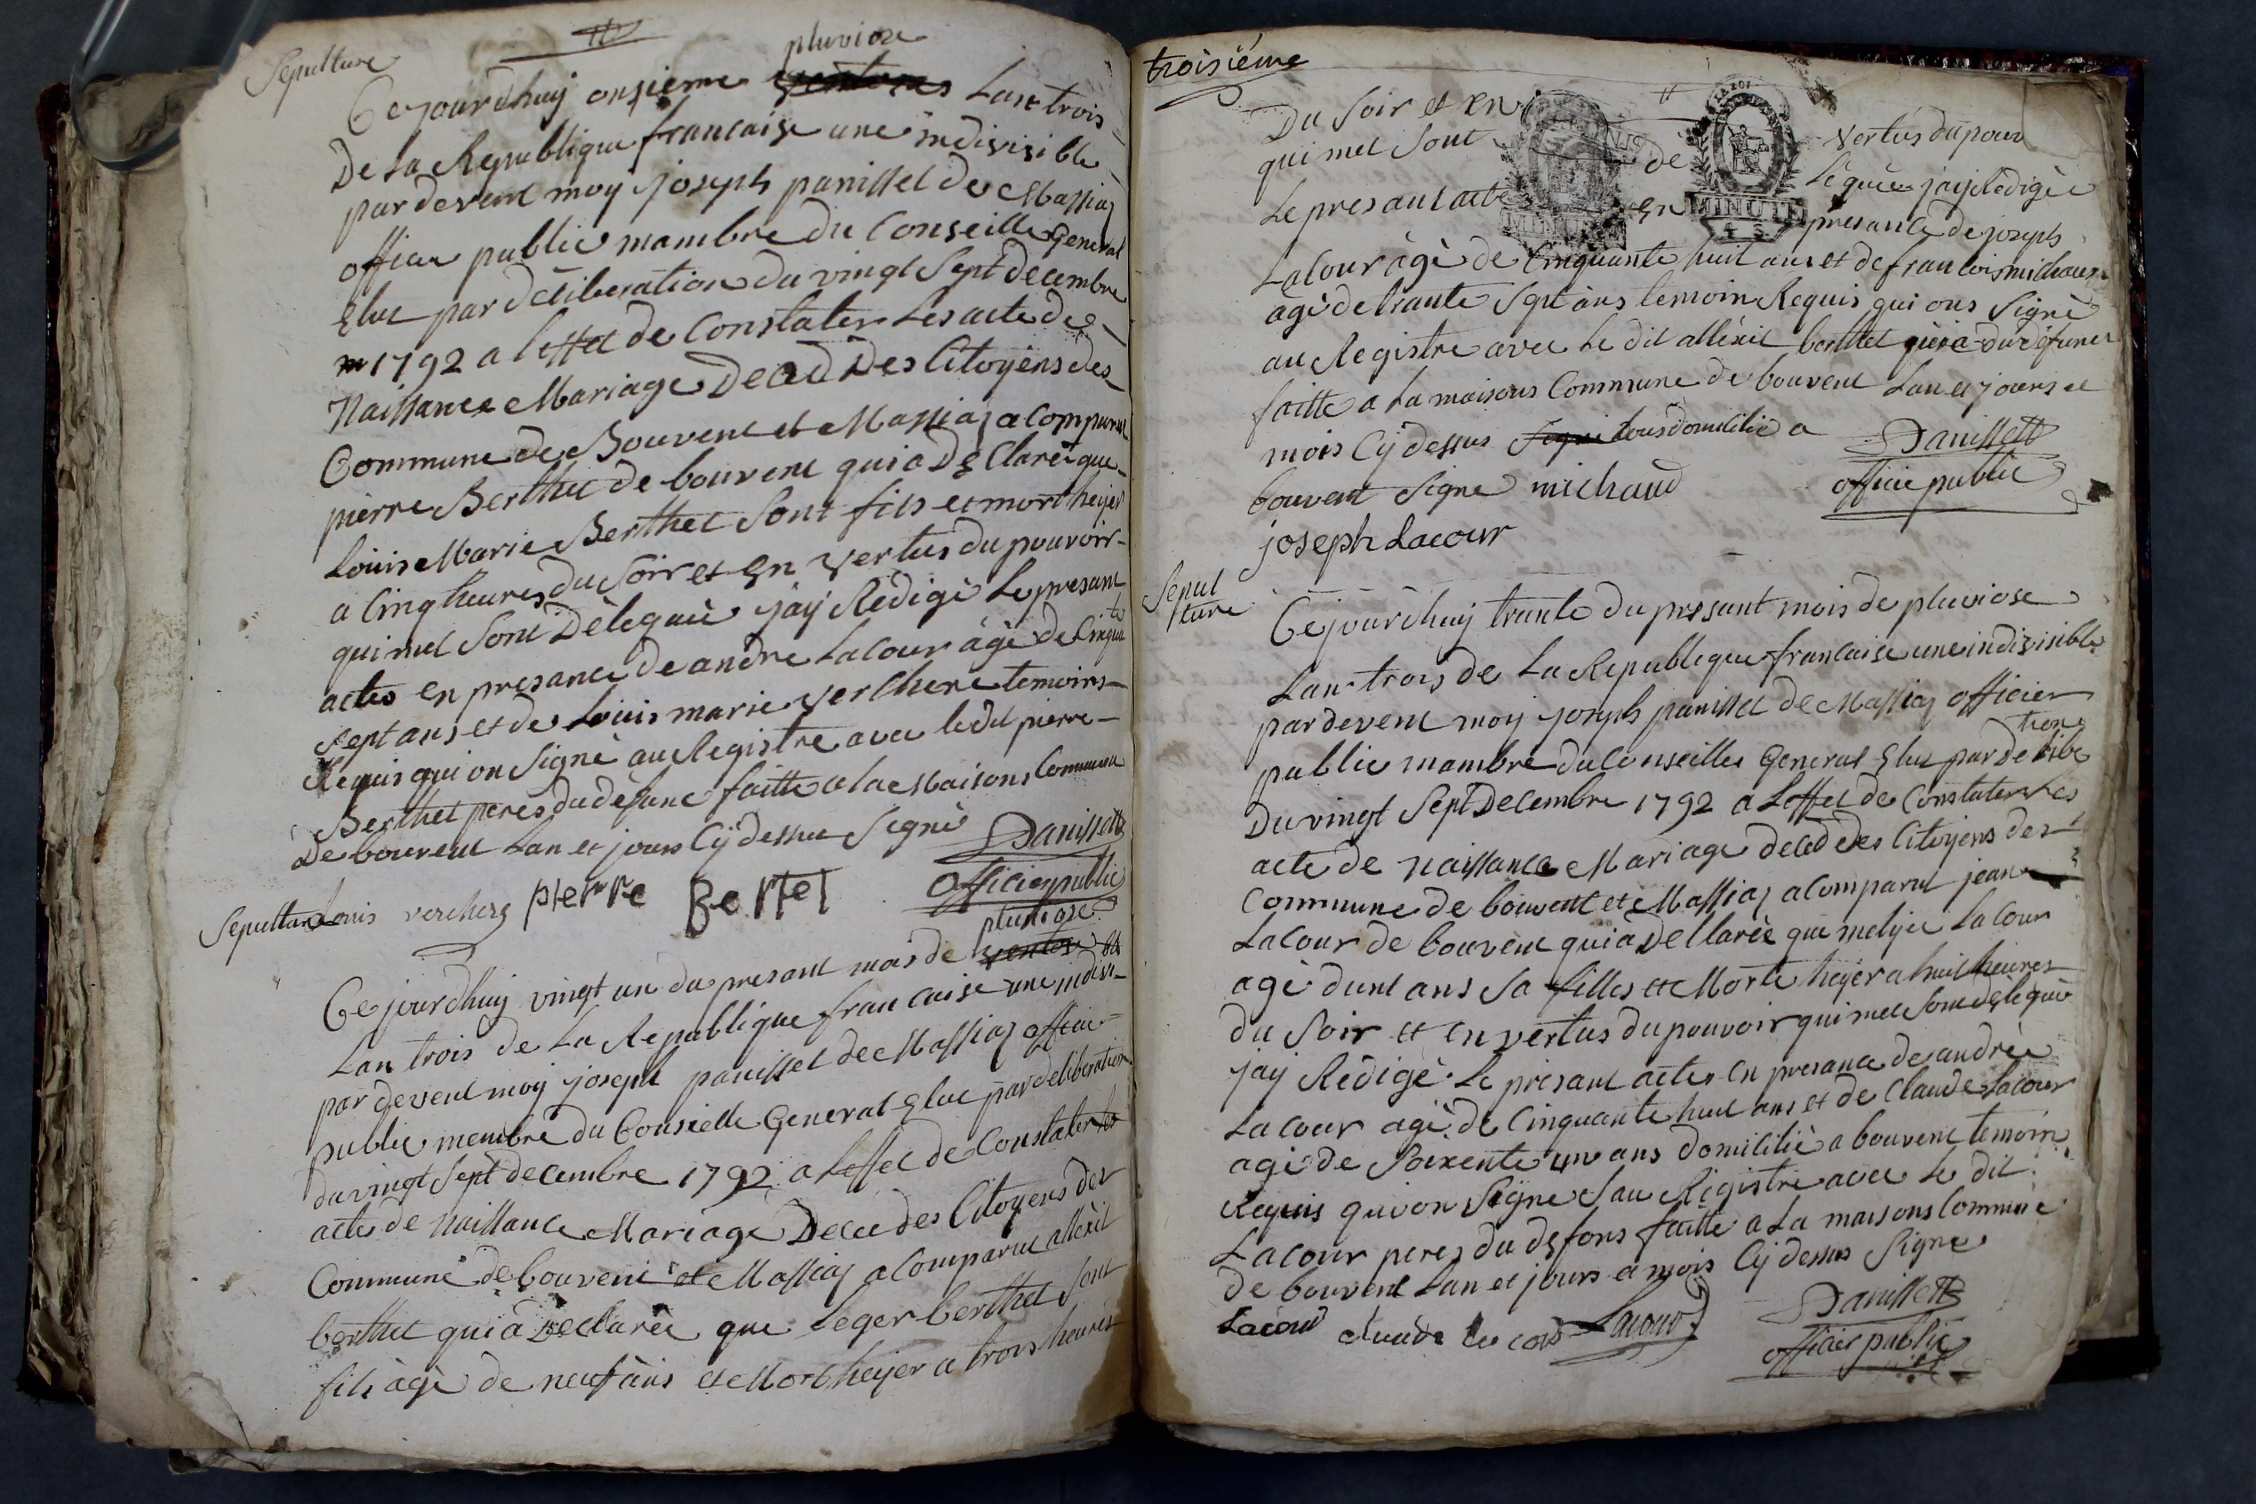 Sepulture
pluviose
Ce jourdhuij onzieme ventose Lan trois
De La Republique francaise une indivisible
par devent moy joseph panisset de Massiaz
officier public mambre du Conseille General
Elue par déliberation du vingt Sept decembre
1792 a leffet de Constater Les acte de
Naissance Mariage Décéd Des Citoyens des
Commune de Bouvent et Massiaz a Comparut
pierre Berthet de bouvent qui a De Claréé que
Louis Marie Berthet Sont fils et mort heyer
a Cinq heures du Soir et En vertus du pouvoir
qui met Sont Délegué jaÿ Rédigé Le presant
actes en presance de andre Lacour agé de Cinquante
Sept ans et de Louis marie verchere temoins
Requis qui on Signé au Registre avec ledit pierre
Berthet peres du défunc faitte a la Maisons Commune
De bouvent Lan et jours Cÿ dessus Signé
Panissett
officier public
Louis verchere pierre Bertet
Sepulture
pluviose
Ce jourdhuij vingt un du presant mois de ventose
Lan trois de La Republique francaise une indivi-
par devent moy joseph panisset de Massiaz officier
public membre du Conseille General Elue par deliberation
du vingt Sept decembre 1792 a Leffet de Constater les
acte de naissance Mariage Décé des Citoyens des
Commune de bouvent et Massiaz a Comparut allexit
berthet qui a declarée que Leger berthet Sont
fils agé de neuf ans et Mort heyer a trois heures
troisiéme
Du Soir et En vertus du pouv
qui met Sont de Légué jaÿ Rédigée
Le presant acte En presante de joseph
MINUTE
Lacour agé de Cinquante huit ans et de francois michaux
agé de trante Sept ans temoin Requis qui ons Signé
au Registre avec Le dit allexit berthet péré du défunct
faitte a La maisons Commune de bouvent Lan et jours et
mois Cÿ dessus tous domicilié a
bouvent Signe michaud
Panissett
officie public
joseph Lacour
Sepul
ture
Cejourdhuij trante du presant mois de pluviose
Lan trois de La Republique francaise une indivisible
par devent moy joseph panisset de Massiaz officier
public mambre du Conseilles General Elue par de libe
tion
Du vingt Sept Decembre 1792 a Leffet de Constater Les
acte de naissance Mariage deced des Citoyens des
Commune de bouvent et Massiaz a Comparut jean
LaCour de bouvent qui a Declarée que LaCour
agé dunt ans Sa filles et Morte heyer a huit heures
du Soir et En vertus du pouvoir qui met Sont délegué
jay Rédigé Le presant actes En presance de andréé
Lacour agé de Cinquante huit ans et de Claude Lacour
agé de Soixente un ans domicilié a bouvent temoin
Requis qui on Signe Sau Registre avec Le dit
Lacour peres du defons faitte a La maisons Commune
de bouvent Lan et jours et mois Cÿ dessus Signe
Lacour claude la cour Lacour
Panissett
officier public